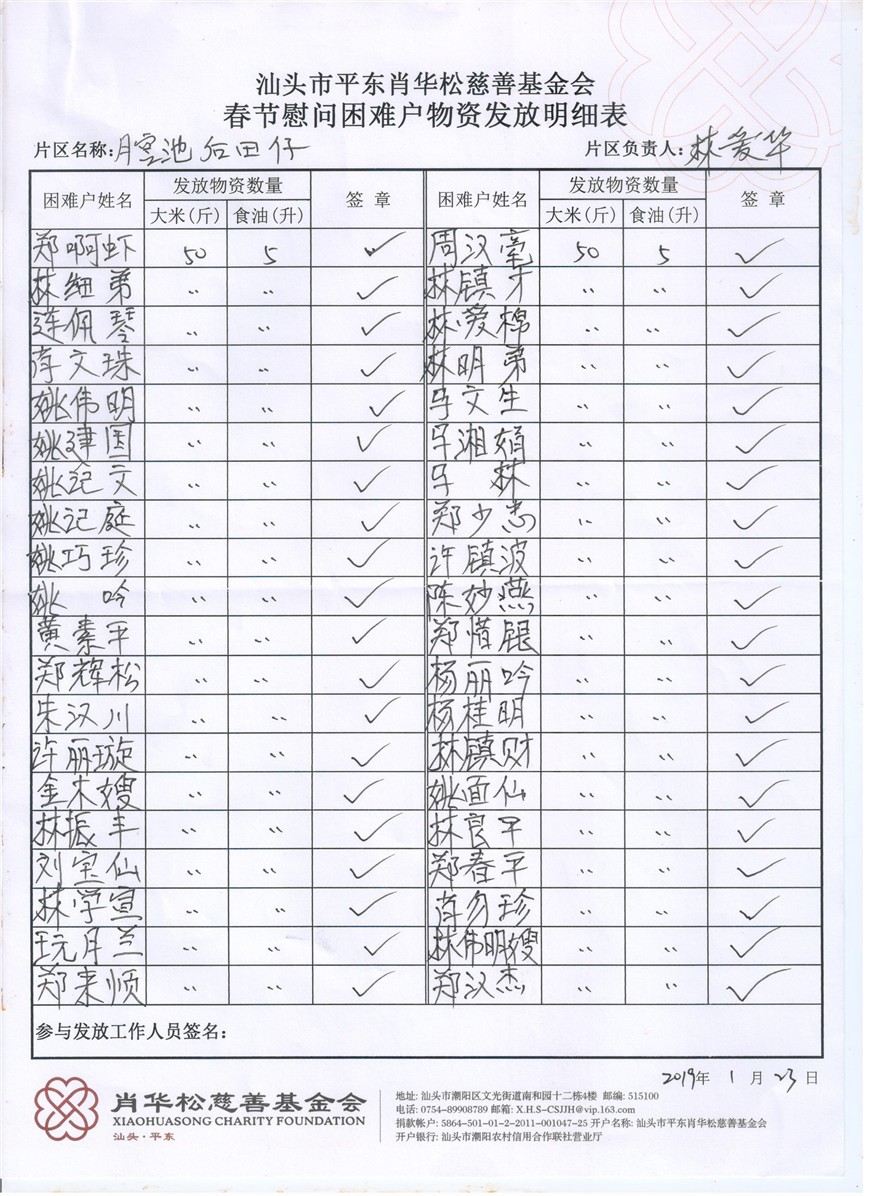 汕头市平东肖华松慈善基金会
春节慰问困难户物资发放明细表
片区名称:月空池后田仔 片区负责人:林爱华
困难户姓名 发放物资数量 签 章 困难户姓名 发放物资数量 签 章
大米(斤) 食油(升) 大米(斤) 食油(升)
郑啊虾 50 5 ✓ 周汉毫 50 5 ✓
林细弟 〃 〃 ✓ 林镇才 〃 〃 ✓
连佩琴 〃 〃 ✓ 林爱棉 〃 〃 ✓
文珠 〃 〃 ✓ 林明弟 〃 〃 ✓
姚伟明 〃 〃 ✓ 马文生 〃 〃 ✓
姚建国 〃 〃 ✓ 马湘娟 〃 〃 ✓
姚记文 〃 〃 ✓ 马 林 〃 〃 ✓
姚记庭 〃 〃 ✓ 郑少忠 〃 〃 ✓
姚巧珍 〃 〃 ✓ 许镇波 〃 〃 ✓
姚 吟 〃 〃 ✓ 陈妙燕 〃 〃 ✓
黄素平 〃 〃 ✓ 郑惜银 〃 〃 ✓
郑辉松 〃 〃 ✓ 杨丽吟 〃 〃 ✓
朱汉川 〃 〃 ✓ 杨桂明 〃 〃 ✓
许丽璇 〃 〃 ✓ 林镇财 〃 〃 ✓
金木嫂 〃 〃 ✓ 姚面仙 〃 〃 ✓
林振丰 〃 〃 ✓ 林良平 〃 〃 ✓
刘宝仙 〃 〃 ✓ 郑春平 〃 〃 ✓
林学宣 〃 〃 ✓ 珍 〃 〃 ✓
月兰 〃 〃 ✓ 林伟明嫂 〃 〃 ✓
郑来顺 〃 〃 ✓ 郑汉杰 〃 〃 ✓
参与发放工作人员签名:
2019年 1 月 23 日
肖华松慈善基金会
XIAOHUASONG CHARITY FOUNDATION
汕头·平东
地址: 汕头市潮阳区文光街道南和园十二栋4楼 邮编: 515100
电话: 0754-89908789 邮箱: X.H.S-CSJJH@vip.163.com
捐款帐户: 5864-501-01-2-2011-001047-25 开户名称: 汕头市平东肖华松慈善基金会
开户银行: 汕头市潮阳农村信用合作联社营业厅